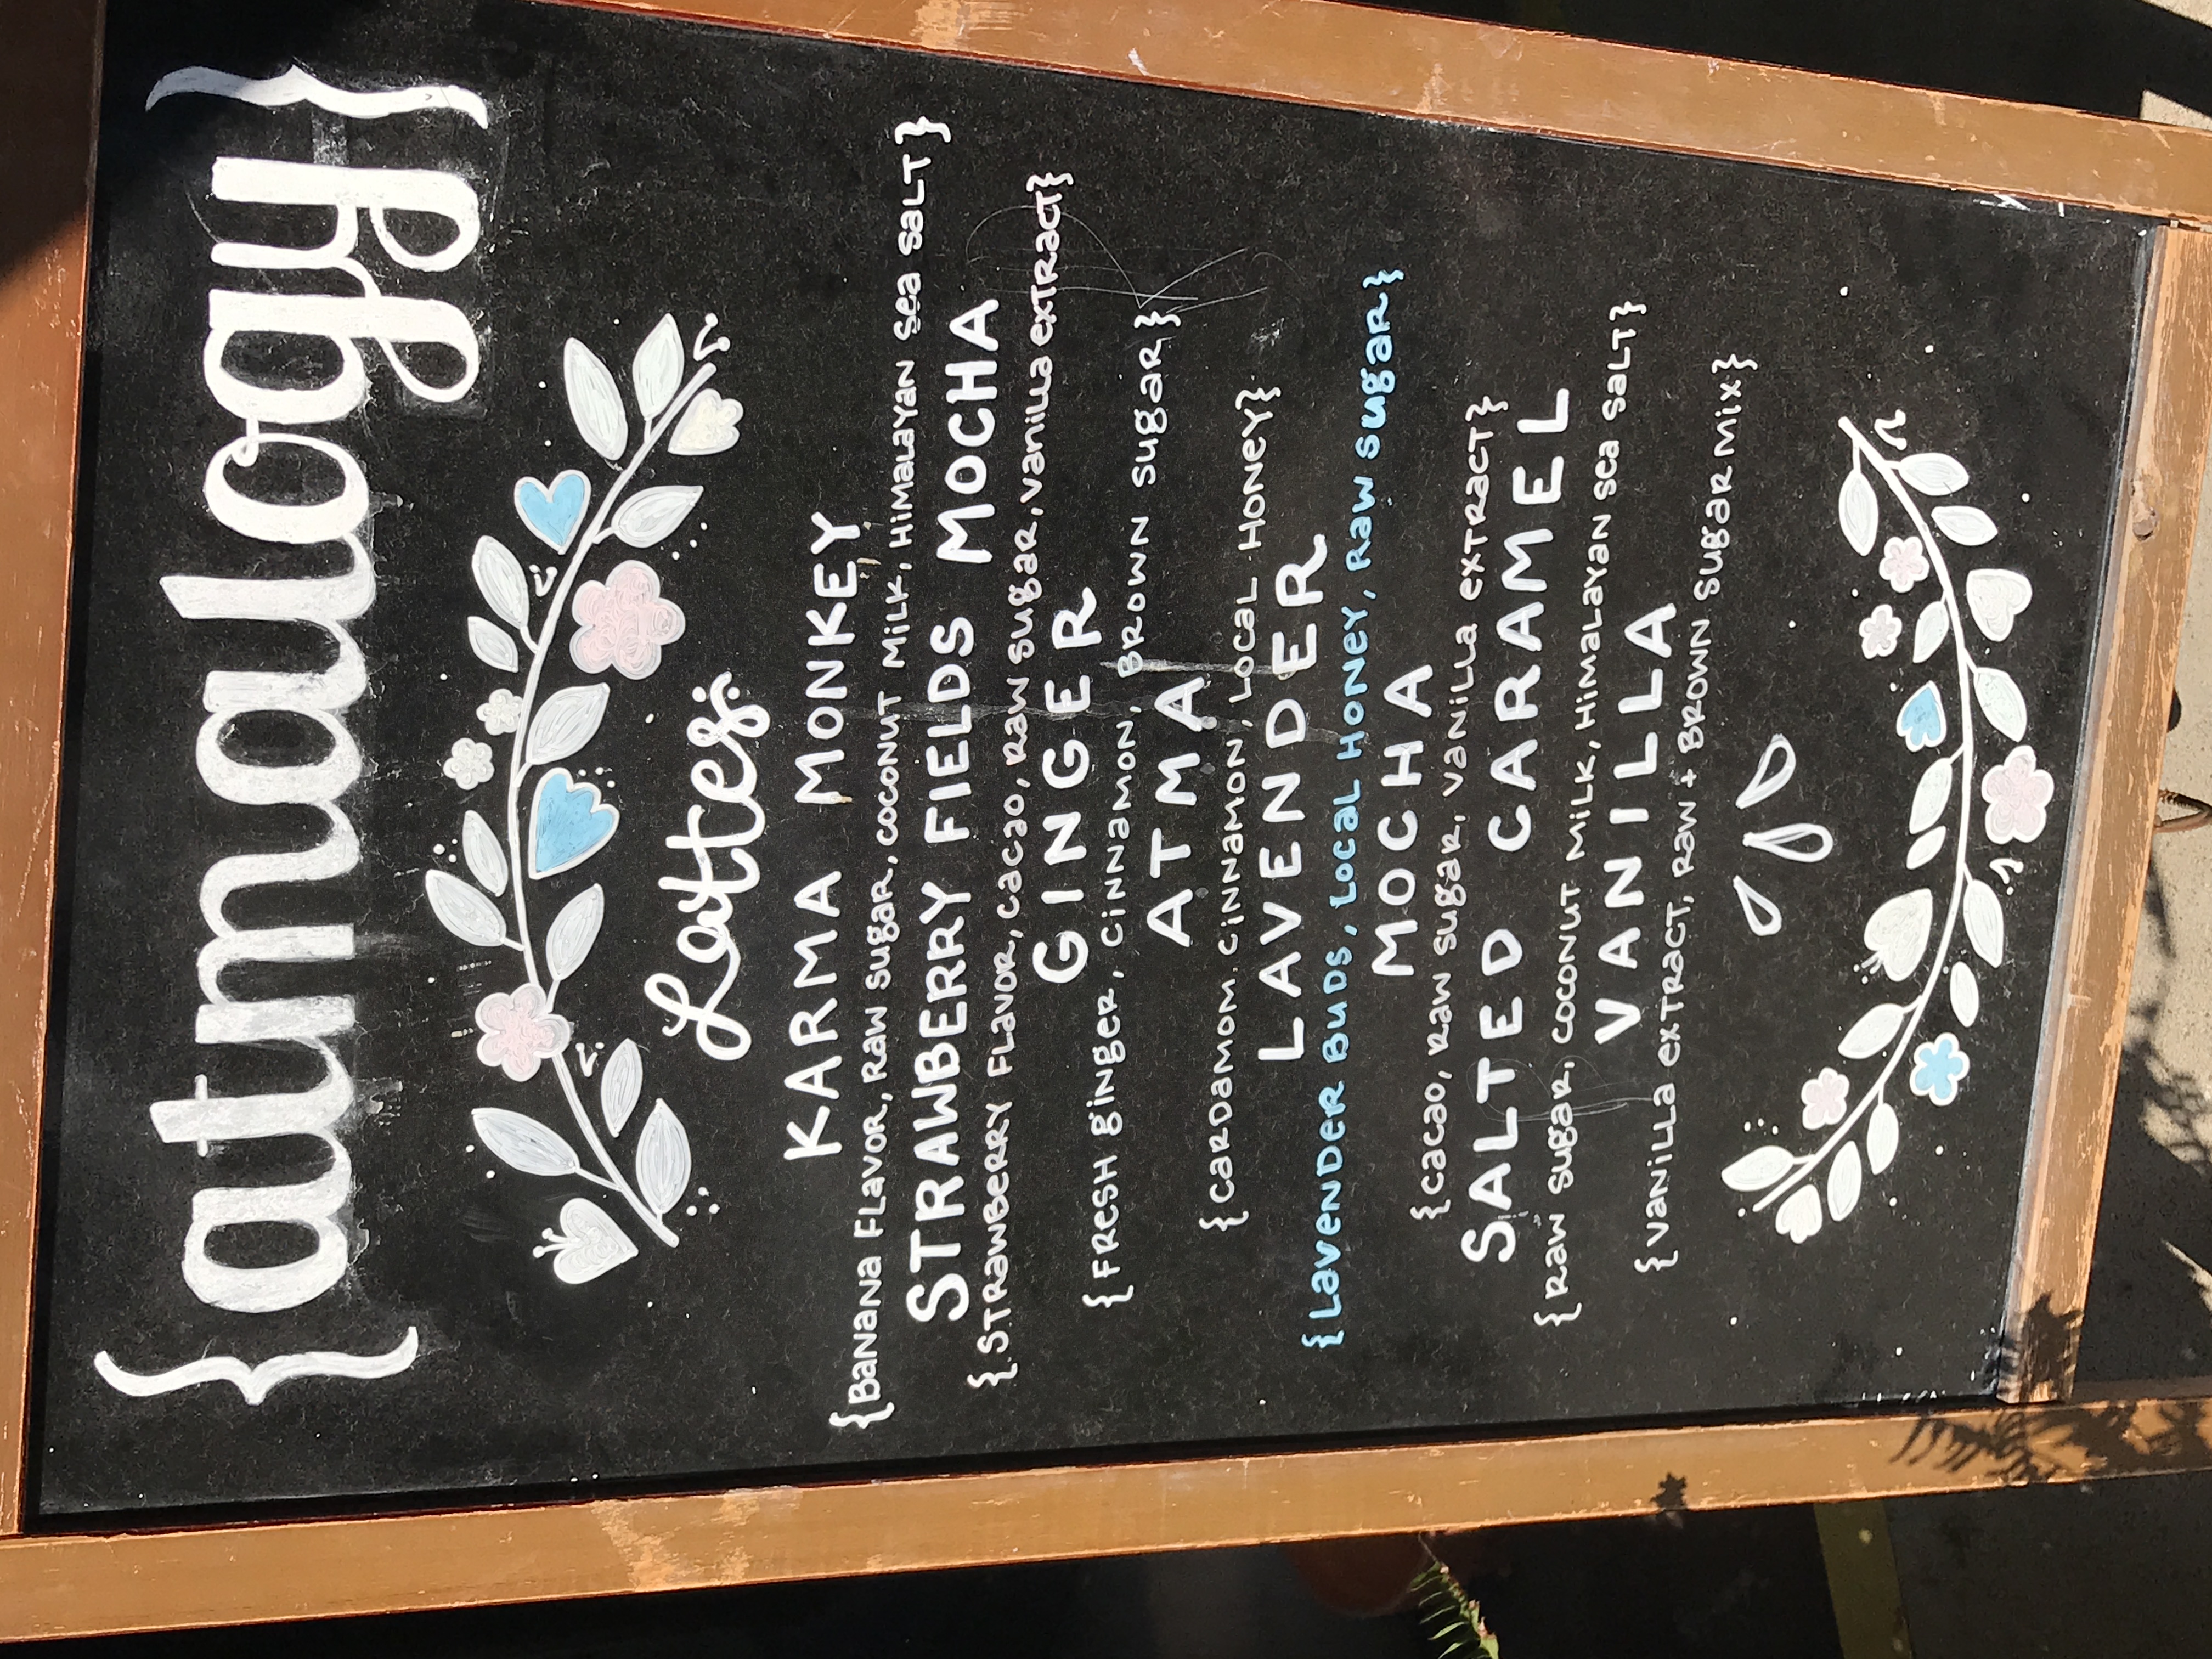 {atmalogy}
Lattes
KARMA MONKEY
{BANANA FLAVOR, RAW SUGAR, COCONUT MILK, HIMALAYAN SEA SALT}
STRAWBERRY FIELDS MOCHA
{STRAWBERRY FLAVOR, CACAO, RAW SUGAR, VANILLA EXTRACT}
GINGER
{FRESH GINGER, CINNAMON, BROWN SUGAR}
ATMA
{CARDAMOM, CINNAMON, LOCAL HONEY}
LAVENDER
{LAVENDER BUDS, LOCAL HONEY, RAW SUGAR}
MOCHA
{CACAO, RAW SUGAR, VANILLA EXTRACT}
SALTED CARAMEL
{RAW SUGAR, COCONUT MILK, HIMALAYAN SEA SALT}
VANILLA
{VANILLA EXTRACT, RAW + BROWN SUGAR MIX}